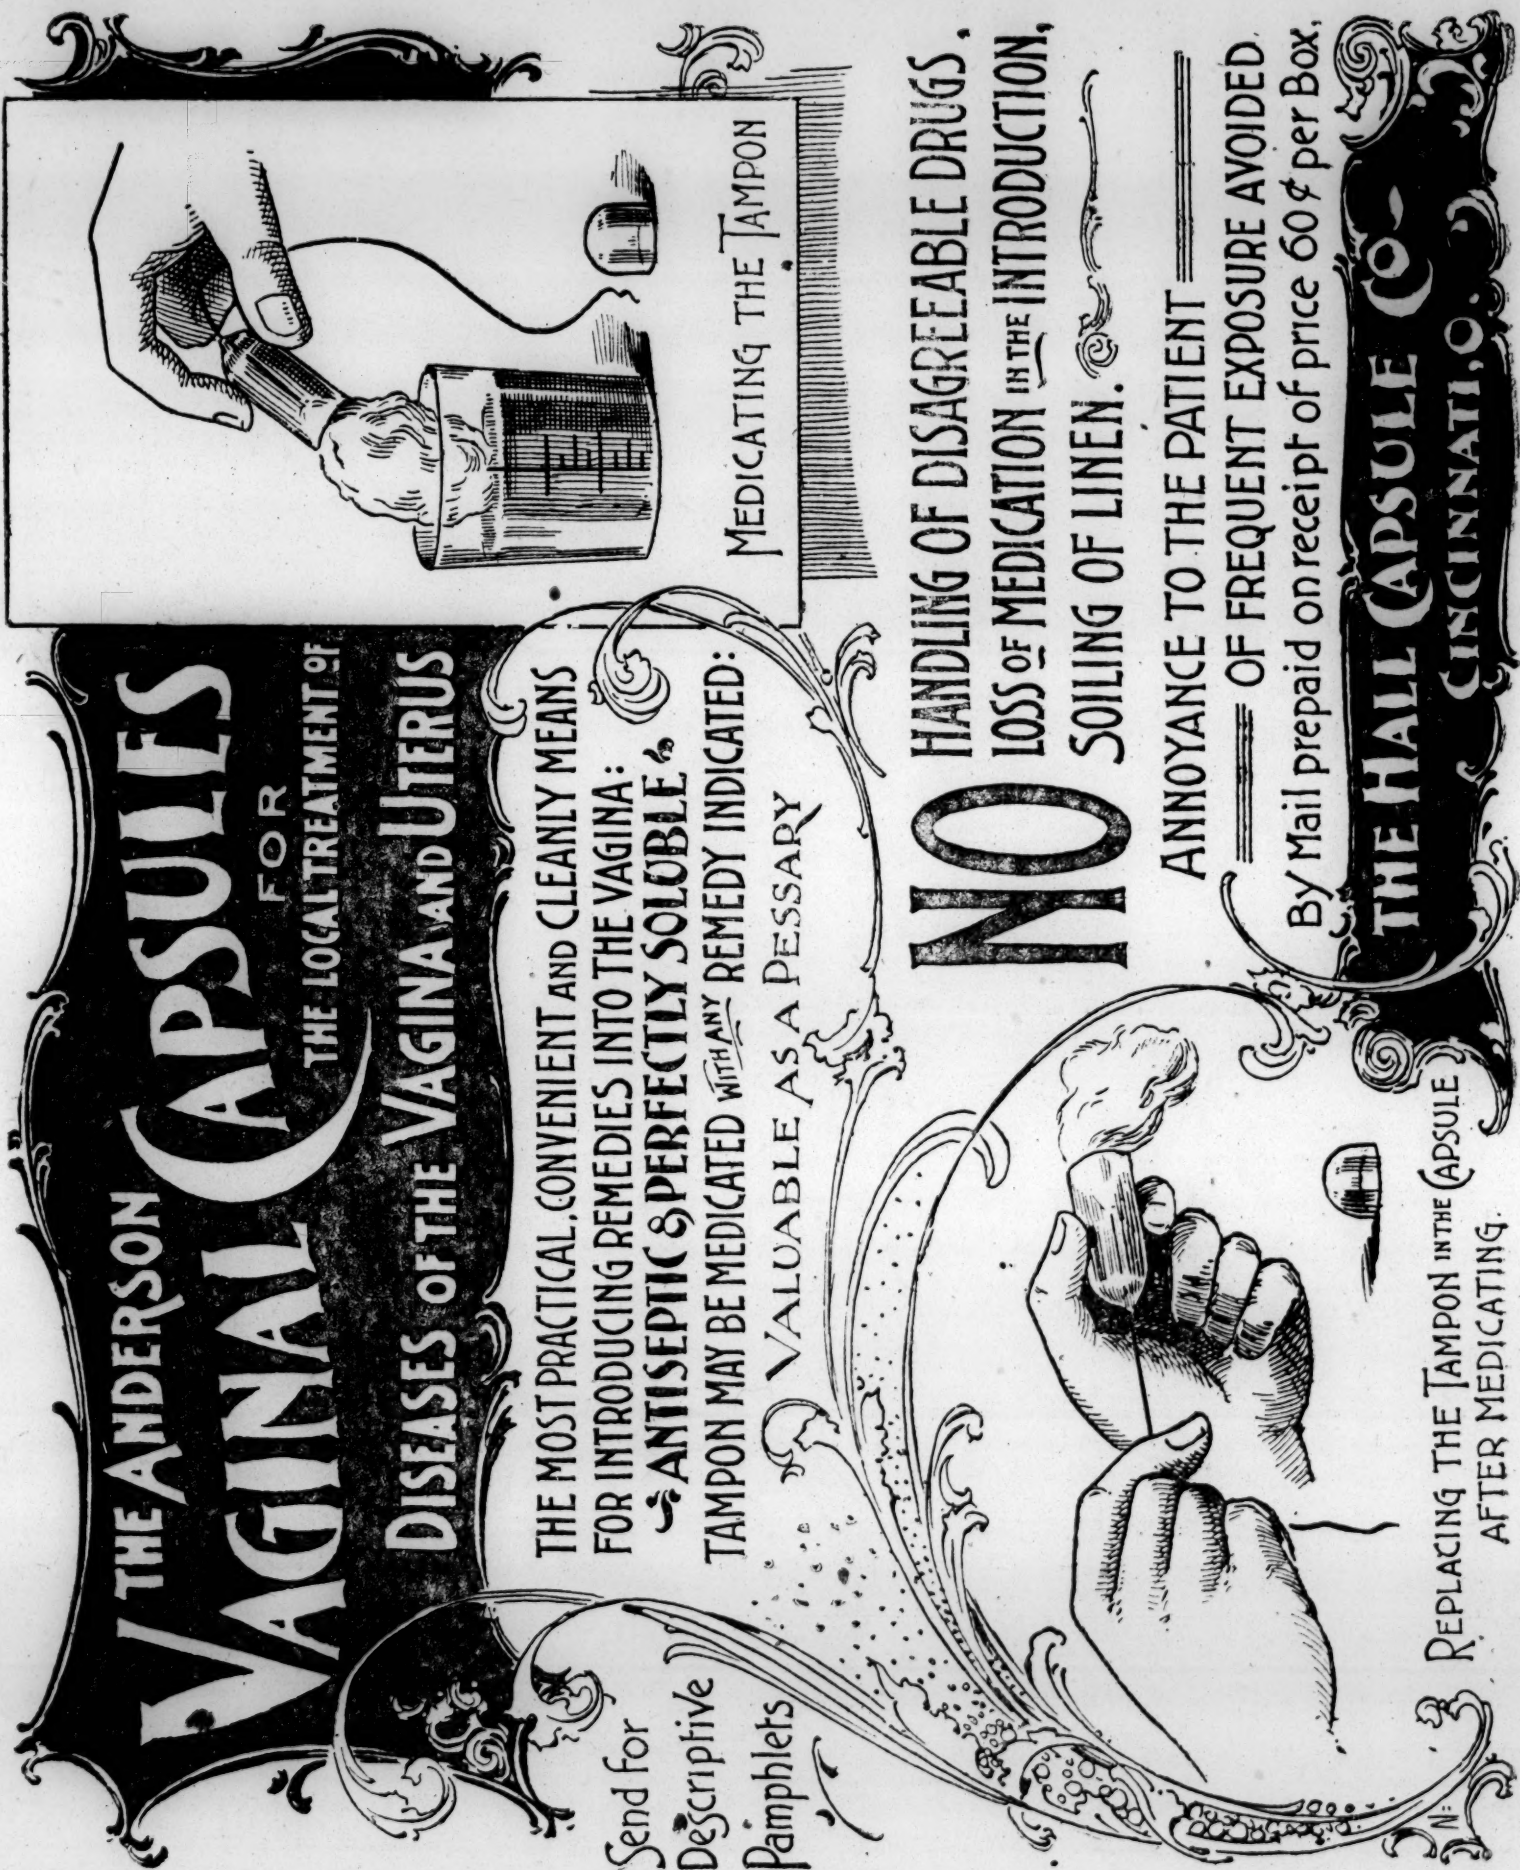 THE ANDERSON
VAGINAL CAPSULES
FOR
THE LOCAL TREATMENT OF
DISEASES OF THE VAGINA AND UTERUS
THE MOST PRACTICAL, CONVENIENT AND CLEANLY MEANS
FOR INTRODUCING REMEDIES INTO THE VAGINA:
ANTISEPTIC & PERFECTLY SOLUBLE
TAMPON MAY BE MEDICATED WITH ANY REMEDY INDICATED:
VALUABLE AS A PESSARY
MEDICATING THE TAMPON
Send for
Descriptive
Pamphlets
NO
HANDLING OF DISAGREEABLE DRUGS,
LOSS OF MEDICATION IN THE INTRODUCTION,
SOILING OF LINEN.
ANNOYANCE TO THE PATIENT
OF FREQUENT EXPOSURE AVOIDED.
By Mail prepaid on receipt of price 60¢ per Box,
THE HALL CAPSULE CO.
CINCINNATI, O.
REPLACING THE TAMPON IN THE CAPSULE
AFTER MEDICATING.